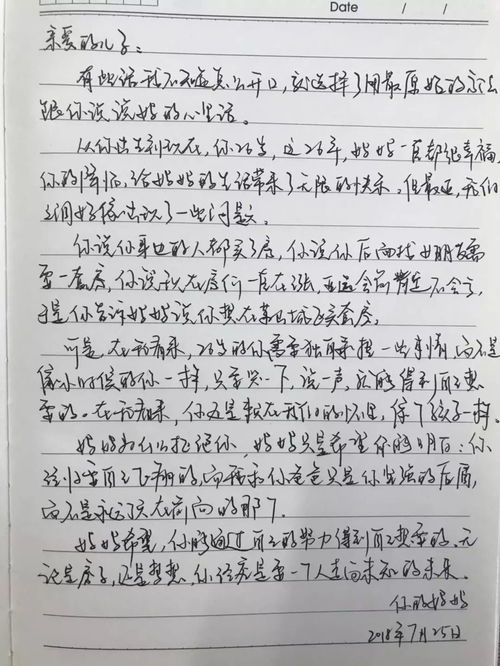 Date / /
亲爱的儿子：
有些话我不知道怎么开口，就选择了用最原始的方法
跟你说说妈妈的心里话。
从你出生到现在，你26岁，这26年，妈妈一直都很幸福，
你的降临，给妈妈的生活带来了无限的快乐。但最近，我们
之间好像出现了一些问题。
你说你身边的人都买了房，你说你后面找女朋友需
要一套房，你说现在房价一直在涨，
于是你告诉妈妈说你想在某县城买套房。
可是，在我看来，26岁的你需要独自承担一些事情，而不是
像小时候的你一样，只要哭一下，说一声，就能得到自己想
要的。在我看来，你还是躲在我们的怀里，像个孩子一样。
妈妈为什么拒绝你，妈妈只是希望你能明白：你
该自己飞翔的，而我和你爸爸只是你坚强的后盾，
而不是永远顶在前面的那个。
妈妈希望，你能通过自己的努力得到自己想要的，无
论是房子，还是梦想，你终究是要一个人走向未知的未来。
你的妈妈
2018年7月25日